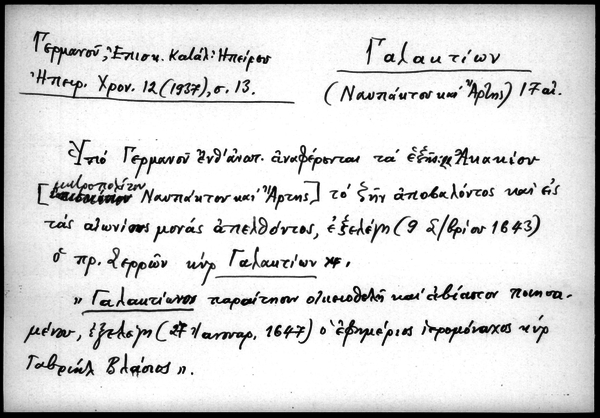 Γερμανοῦ, Ἐπισκ. Καταλ. Ἠπείρου
Ἠπειρ. Χρον. 12 (1937), σ. 13.
Γαλακτίων
(Ναυπάκτου καὶ Ἄρτης) 17 αἰ.
Ὑπό Γερμανοῦ ἀναφέρονται τά ἑξῆς: Ἀκακίου
[μητροπολίτου Ναυπάκτου καὶ Ἄρτης] τό ζῆν ἀποβαλόντος καὶ εἰς
τάς αἰωνίους μονάς ἀπελθόντος, ἐξελέγη (9 δ/βρίου 1643)
ὁ πρ. Σερρῶν κύρ Γαλακτίων.
" Γαλακτίωνος παραίτησιν οἰκειοθελῆ καὶ ἀβίαστον ποιησα-
μένου, ἐξελέγη (27 Ἰανουαρ. 1647) ὁ ἐφημέριος ἱερομόναχος κύρ
Γαβριήλ Βλάσιος ".